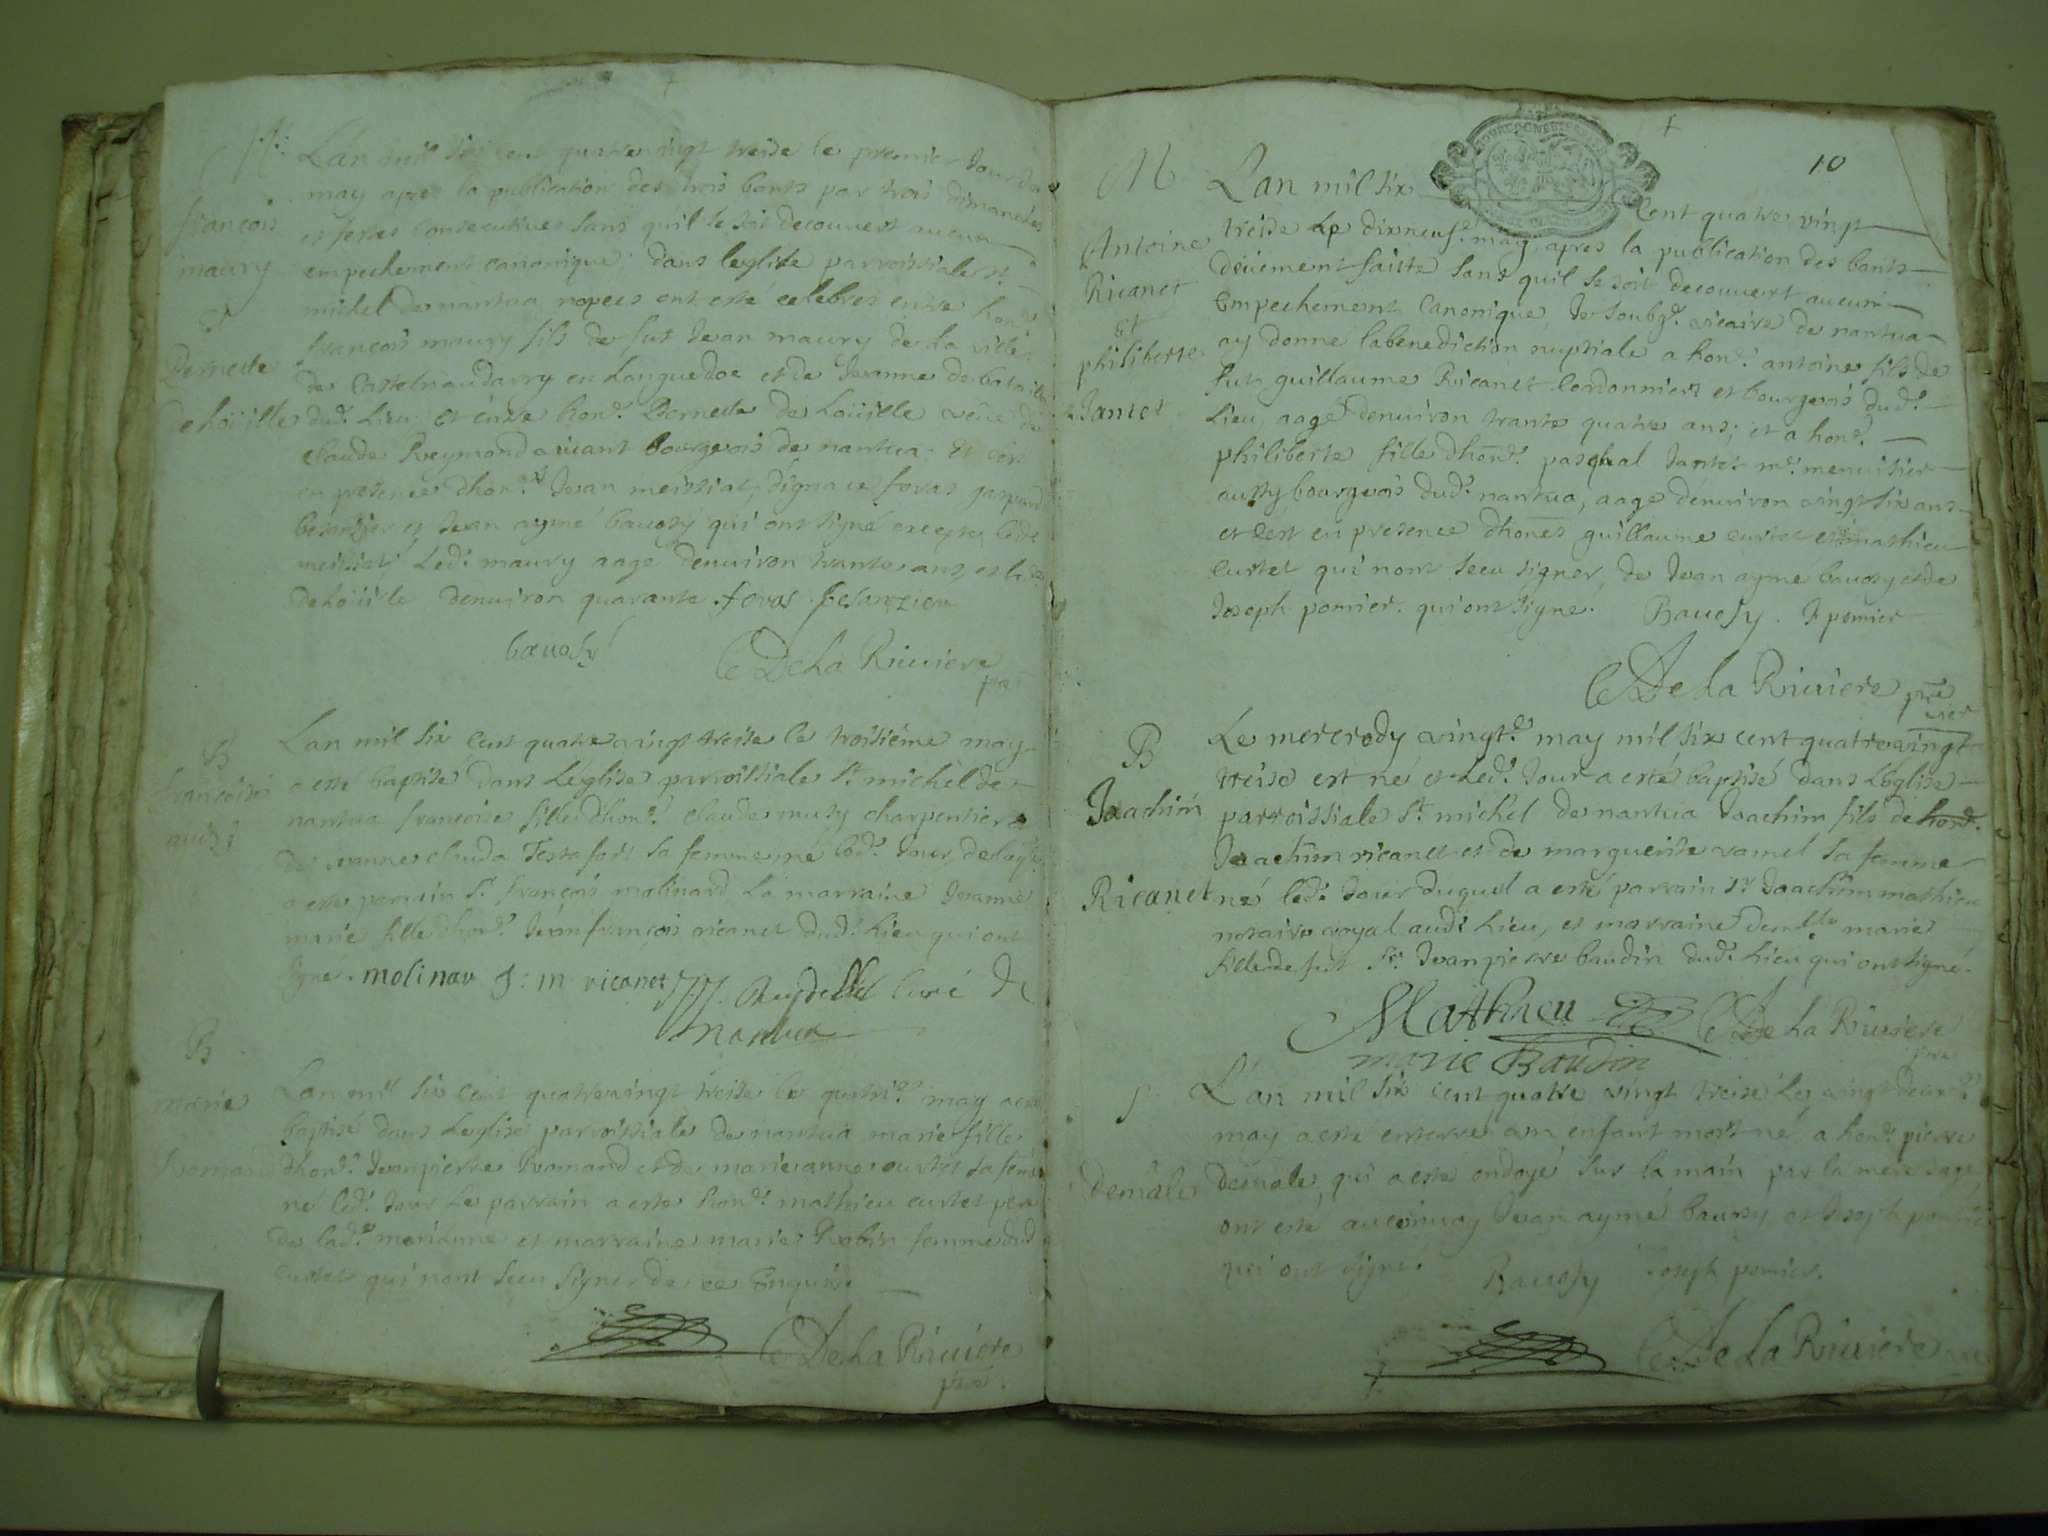 M.
françois
maury
et
Pernette
dehoüille
Lan mil six cent quatre vingt treise le premier Jour de
may apres la publication des trois bants par trois dimanches
et festes consecutives sans quil se soit decouvert aucun
empechement canonique, dans leglise parroissiale st
michel de nantua nopces ont esté celebres entre hon.
françois maury fils de fut Jean maury de la ville
de Castelnaudarry en Languedoc et de Jeanne
dud. Lieu, et entre hon. Pernette de hoüille veuve de
claude Reymond vivant bourgeois de nantua. Et ce
en presence dhon. Jean meissiat, Ignace feras gaspard
besanzier et Jean aymé bauosy qui ont signé excepté led
meissiat, Led. maury aagé denuiron trante ans, et la
dehoüille denuiron quarante. feras Besanzier
bauosy
C DeLa Riuiere
pre
B
françoise
musy
Lan mil six cent quatre vingt treise le troisiéme may
a esté baptisé dans Léglise parroissiale st michel de
nantua francoise fille dhon. claude musy charpentier et
de Jeanne clauda Terrafort sa femme né led. Jour, delaquelle
a esté parrain Sr françois molinard La marraine Jeanne
marie fille dhon. Jean françois ricanet dud. Lieu qui ont
signé. molinar J: m ricanet M. Reydellet Curé de
nantua
B
marie
Romand
Lan mil six cent quatre vingt treise le quatri. may a esté
baptisé dans Leglise parroissiale de nantua marie fille
dhon. Jean pierre Romand et de marie anne curtet sa femme
né led. Jour Le parrain a esté hon. mathieu curtet pere
de lad. marianne et marraine marie Robin femme dud
curtet qui nont sceu signer de ce Enquis.
C DeLa Riuiere
pre
10
M
Antoine
Ricanet
et
philiberte
Jantet
Lan mil six cent quatre vingt
treise Le dixneuf. may, apres la publication des bants
deüement faitte sans quil se soit decouvert aucun
Empechement Canonique, Je soubg. vicaire de nantua
ay donné la benediction nuptiale a hon. antoine fils de
fut guillaume Ricanet Cordonnier et bourgeois dud.
Lieu, aagé denuiron trante quatre ans; et a hon.
philiberte fille dhon. paschal Jantet m. menuisier
aussy bourgeois dud. nantua, aagé denuiron vingt six ans
et cest en presence dhones guillaume curtet et mathieu
Curtet qui nont sceu signer, de Jean aymé bauosy et de
Joseph pomier. qui ont signé. Bauosy. J pomier
C De la Riuiere pre
vicr
B
Joachim
Ricanet
Le mercredy vingt. may mil six cent quatre vingt
treise est né et Led. Jour a esté baptisé dans Léglise
parroissiale St michel de nantua Joachim fils de hon.
Joachim ricanet et de margueritte ramel sa femme
né led. Jour duquel a esté parrain Sr Joachim mathieu
notaire royal aud. Lieu, et marraine demlle marie
fille de fut Sr. Jean pierre baudin dud. Lieu qui ont signé.
Matthieu C De La Riuiere
marie Baudin pre
S
demâle
L'an mil six cent quatre vingt treise Le vingt deux.
may a esté enterré un enfant mort né, a hon. pierre
demâle, qui a esté ondoyé sur la main par la mere sage,
ont esté au convoy Jean aymé bauosy et Joseph pomier
qui ont signé. Bauosy Joseph pomier.
C De La Riuiere